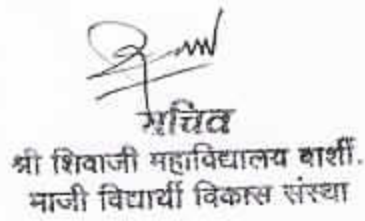 सचिव
श्री शिवाजी महाविद्यालय बार्शी.
माजी विद्यार्थी विकास संस्था